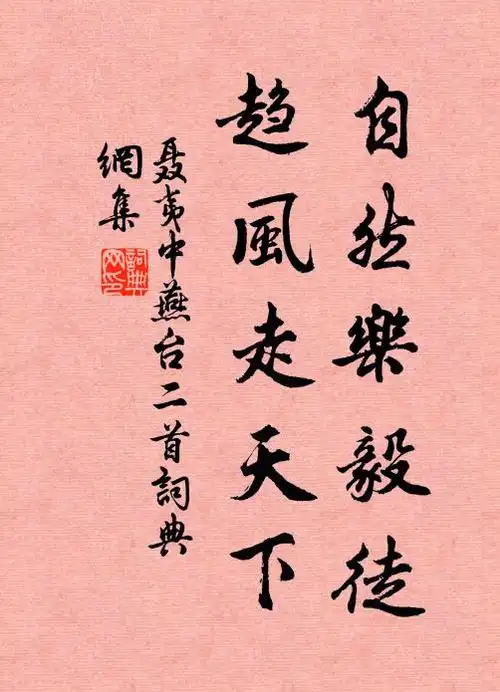 自然樂毅徒
趨風走天下
聶夷中燕台二首詞典
網集
詞典
网印